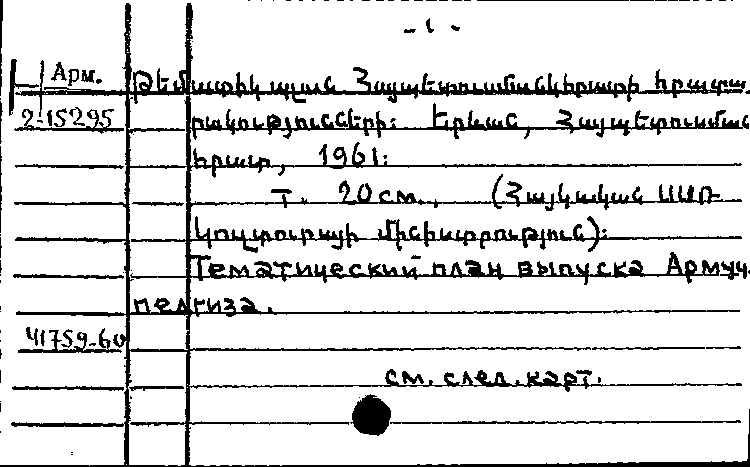 - 1 -
Арм. Թեմատիկ պլան Հայպետուսմանկհրատի հրատա
2-15295 րակությունների։ Երևան, Հայպետուսման
հրատ, 1961։
Т. 20 см., (Հայկական ՍՍՌ
կուլտուրայի մինիստրություն)։
Тематический план выпуска Армуч
педгиза.
41759-60
см. след. карт.